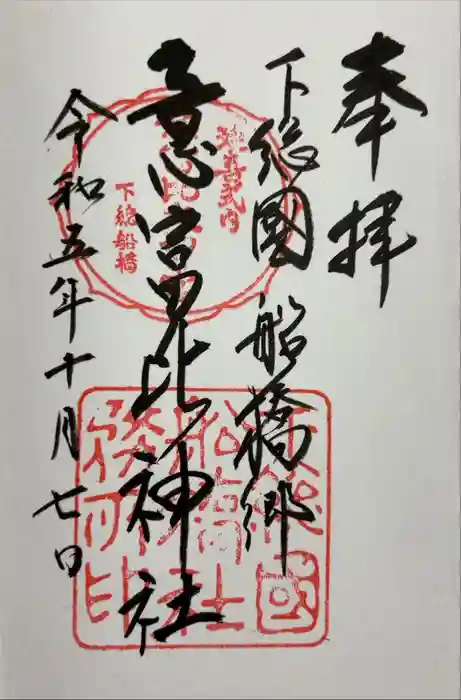 奉拝
下總國船橋郷
意富比神社
令和五年十月七日
延喜式内
下総船橋